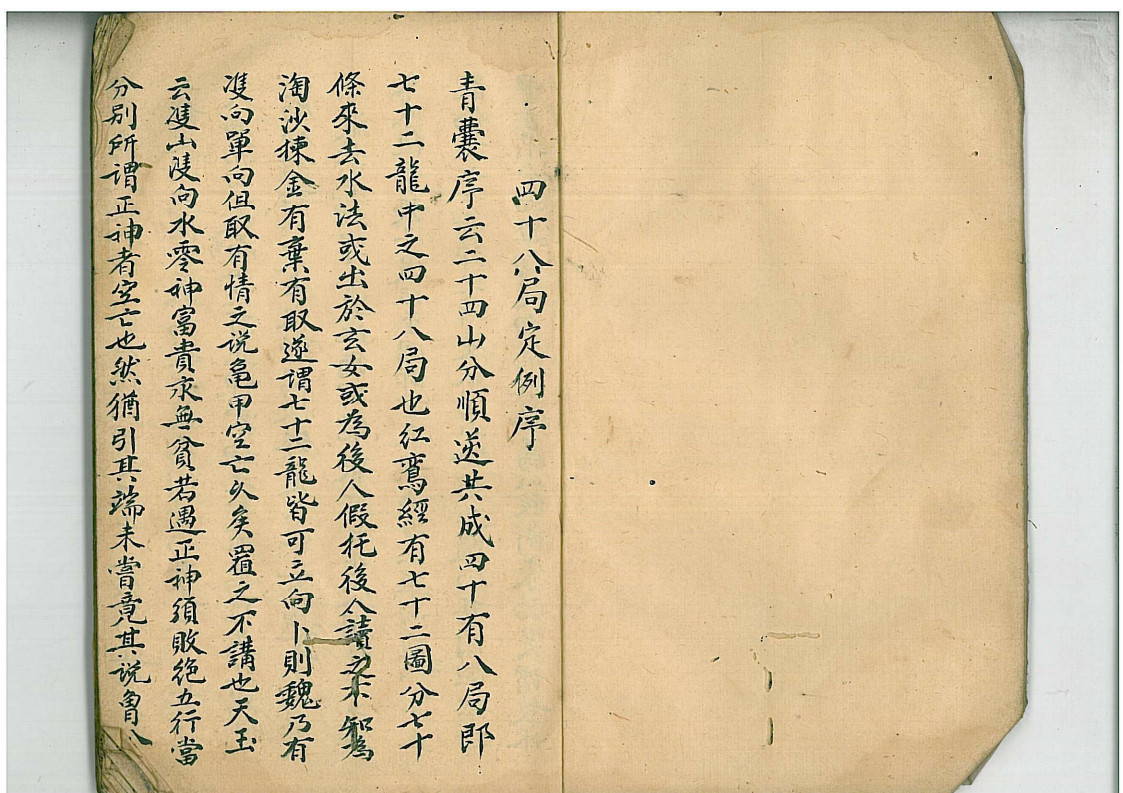 四十八局定例序
青囊序云二十四山分順逆共成四十有八局即
七十二龍中之四十八局也紅鸞經有七十二圖分七十
條來去水法或出於玄女或為後人假托後人讀之不知為
淘沙揀金有棄有取遂謂七十二龍皆可立向卜則魏乃有
雙向單向但取有情之説龜甲空亡久矣置之不講也天玉
云雙山雙向水零神富貴永無貧若遇正神須敗絶五行當
分别所謂正神者空亡也然猶引其端未嘗竟其説曾公